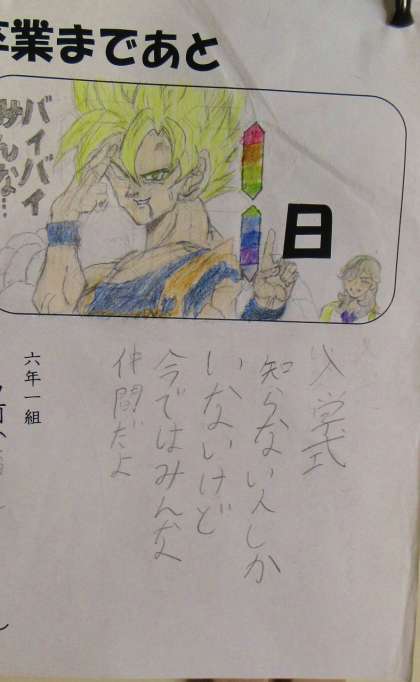 卒業まであと
日
バイバイ
みんな…
入学式
知らない人しか
いないけど
今ではみんな
仲間だよ
六年一組